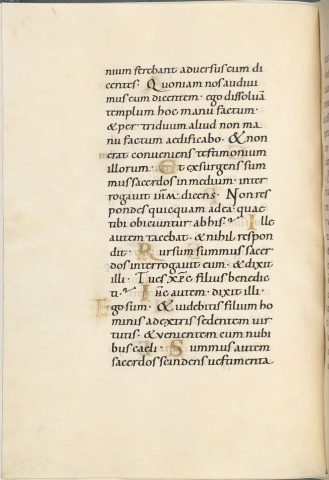 nium ferebant adversus eum di
centes· Quoniam nos audiui
mus eum dicentem· ego dissoluā
templum hoc manu factum·
& per triduum aliud non ma
nu factum aedificabo· & non
erat conveniens testimonium
illorum· Et exsurgens sum
mus sacerdos in medium· inter
rogauit ihm̄ dicens· Non res
pondes quicquam adea quae
tibi obiciuntur abhis· Ille
autem tacebat· & nihil respon
dit· Rursum summus sacer
dos interrogauit eum· & dixit
illi· Tu es xp̄c filius benedic
ti· Ih̄c autem· dixit illi·
Ego sum· & uidebitis filium ho
minis adextris sedentem uir
tutis· & venientem cum nubi
bus caeli· Summus autem
sacerdos scindens uestimenta